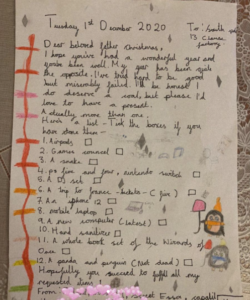 Tuesday 1st December 2020
To: South
13
Dear beloved father christmas,
I hope you've had a wonderful year and
you've been well. My year has been quite
the opposite. I've tried hard to be good
but miserably failed. I'll be honest I
do deserve a coal, but please I'd
love to have a present.
Actually more than one.
Here's a list. Tick the boxes if you
have stone them -
1. Airpods
2. Games
3. A snake
4. ps five and four, nintendo switch
5. A DJ set
6. A trip to france - tickets - (five)
7. An iphone 12
8. laptop
9. A new computer (latest)
10. Hand sanitiser
11. A whole book set of the Wizards of
Once
12. A panda and penguin (not dead)
Hopefully you succeed to fulfil all my
requested items.
From